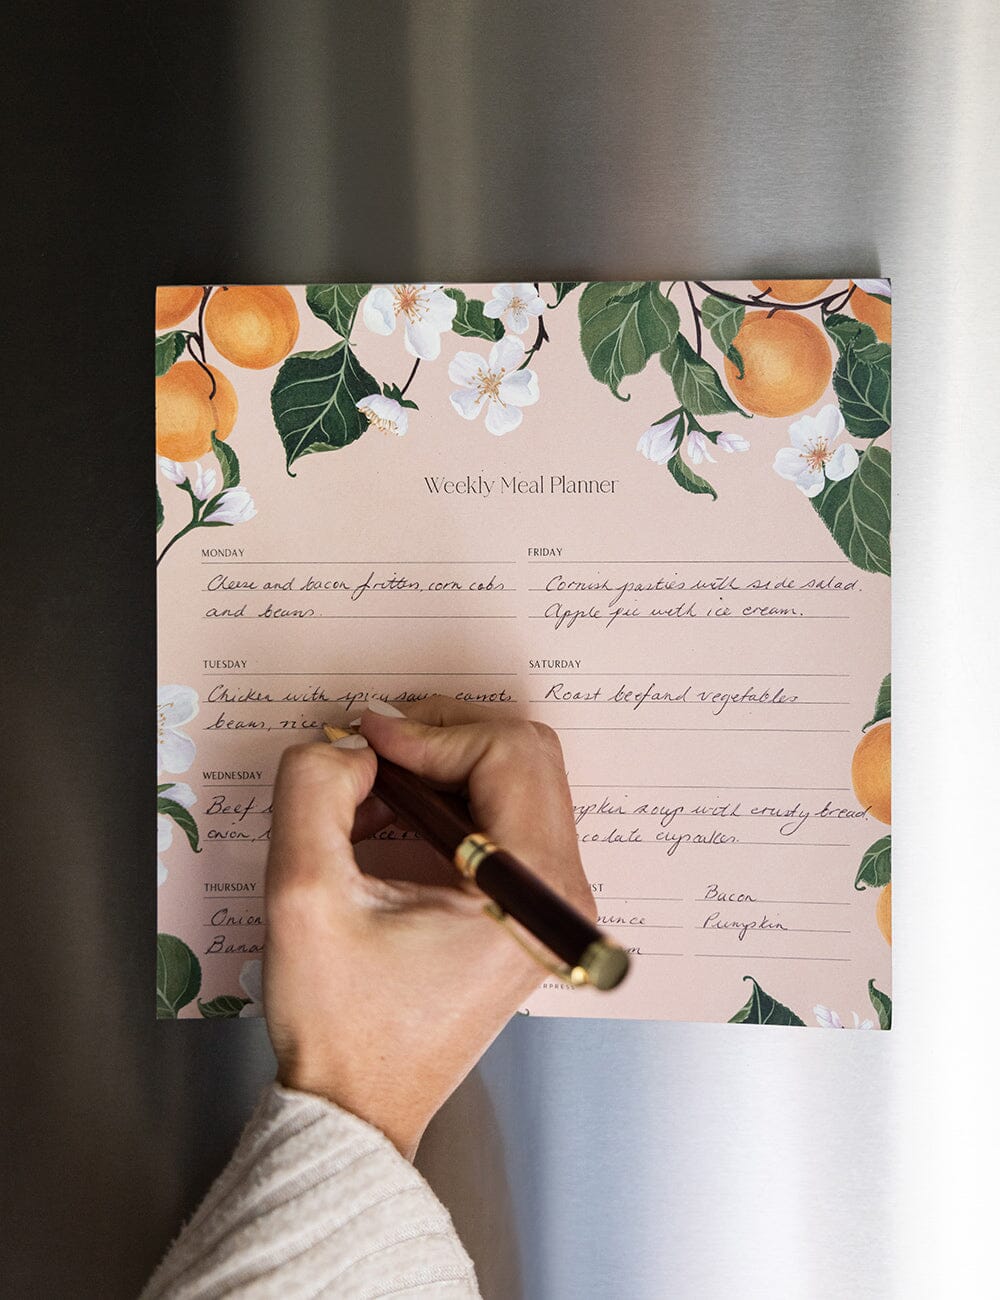 Weekly Meal Planner
MONDAY
Cheese and bacon fritters, corn cobs
and beans.
TUESDAY
Chicken with spicy sauce carrots
beans, rice
WEDNESDAY
Beef
onion,
THURSDAY
Onion
Bana
FRIDAY
Cornish pasties with side salad.
Apple pie with ice cream.
SATURDAY
Roast beef and vegetables
mpkin soup with crusty bread.
ocolate cupcakes.
ST
Bacon
mince
Pumpkin
ERPRESS